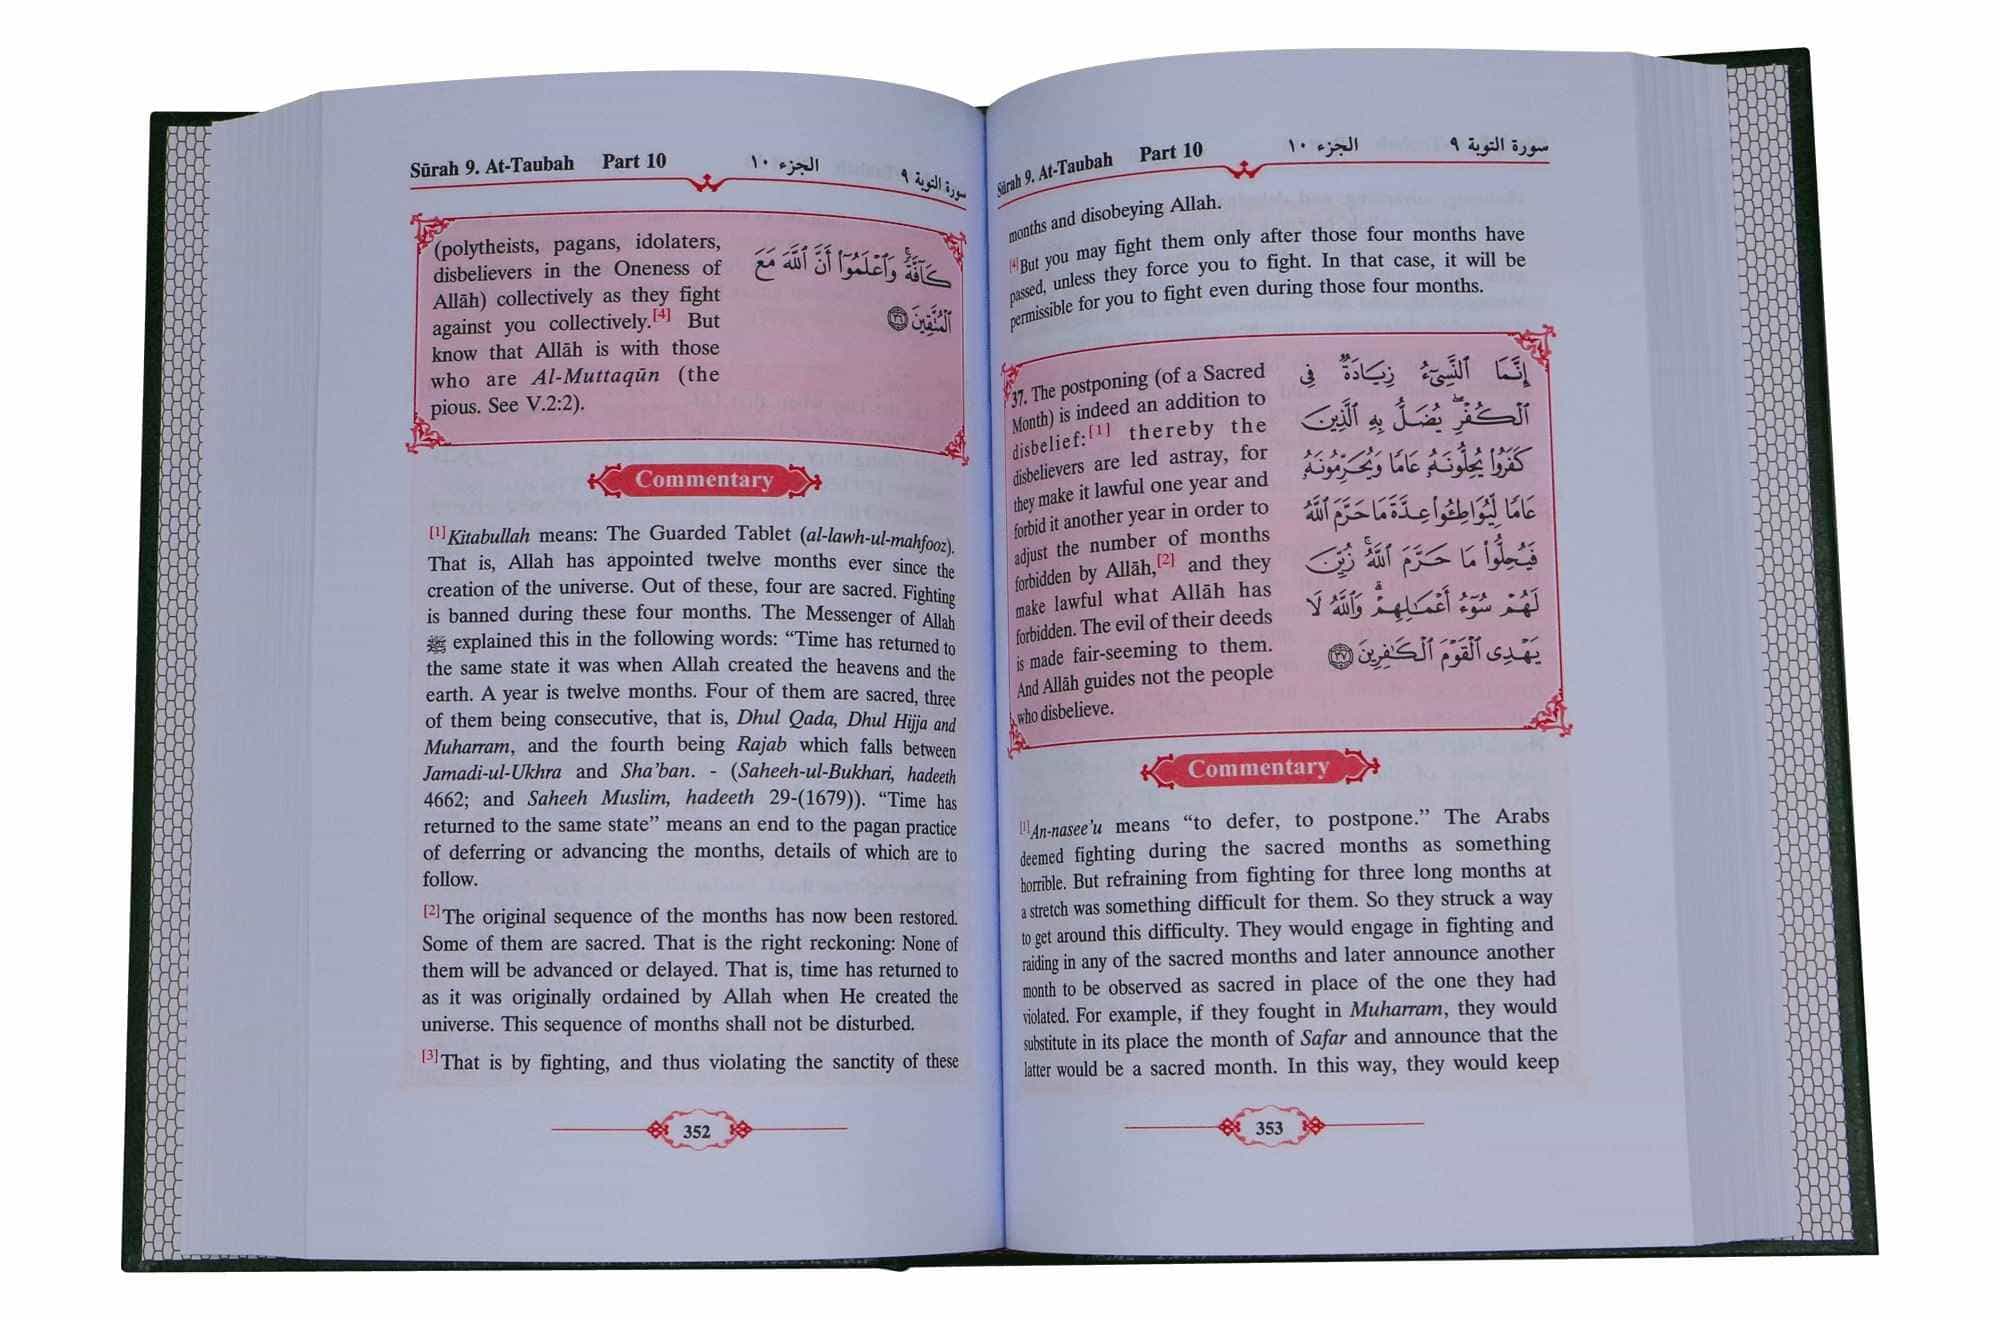 Sūrah 9. At-Taubah Part 10 الجزء ١٠ سورة التوبة ٩
(polytheists, pagans, idolaters,
disbelievers in the Oneness of
Allāh) collectively as they fight
against you collectively.[4] But
know that Allāh is with those
who are Al-Muttaqūn (the
pious. See V.2:2).
كَآفَّةً ۚ وَٱعْلَمُوٓا۟ أَنَّ ٱللَّهَ مَعَ
ٱلْمُتَّقِينَ ٣٦
Commentary
[1]Kitabullah means: The Guarded Tablet (al-lawh-ul-mahfooz).
That is, Allah has appointed twelve months ever since the
creation of the universe. Out of these, four are sacred. Fighting
is banned during these four months. The Messenger of Allah
ﷺ explained this in the following words: “Time has returned to
the same state it was when Allah created the heavens and the
earth. A year is twelve months. Four of them are sacred, three
of them being consecutive, that is, Dhul Qada, Dhul Hijja and
Muharram, and the fourth being Rajab which falls between
Jamadi-ul-Ukhra and Sha’ban. - (Saheeh-ul-Bukhari, hadeeth
4662; and Saheeh Muslim, hadeeth 29-(1679)). “Time has
returned to the same state” means an end to the pagan practice
of deferring or advancing the months, details of which are to
follow.
[2]The original sequence of the months has now been restored.
Some of them are sacred. That is the right reckoning: None of
them will be advanced or delayed. That is, time has returned to
as it was originally ordained by Allah when He created the
universe. This sequence of months shall not be disturbed.
[3]That is by fighting, and thus violating the sanctity of these
352
Sūrah 9. At-Taubah Part 10 الجزء ١٠ سورة التوبة ٩
months and disobeying Allah.
[4]But you may fight them only after those four months have
passed, unless they force you to fight. In that case, it will be
permissible for you to fight even during those four months.
37. The postponing (of a Sacred
Month) is indeed an addition to
disbelief:[1] thereby the
disbelievers are led astray, for
they make it lawful one year and
forbid it another year in order to
adjust the number of months
forbidden by Allāh,[2] and they
make lawful what Allāh has
forbidden. The evil of their deeds
is made fair-seeming to them.
And Allāh guides not the people
who disbelieve.
إِنَّمَا ٱلنَّسِىٓءُ زِيَادَةٌ فِى
ٱلْكُفْرِ ۖ يُضَلُّ بِهِ ٱلَّذِينَ
كَفَرُوا۟ يُحِلُّونَهُۥ عَامًا وَيُحَرِّمُونَهُۥ
عَامًا لِّيُوَاطِـُٔوا۟ عِدَّةَ مَا حَرَّمَ ٱللَّهُ
فَيُحِلُّوا۟ مَا حَرَّمَ ٱللَّهُ ۚ زُيِّنَ
لَهُمْ سُوٓءُ أَعْمَـٰلِهِمْ ۗ وَٱللَّهُ لَا
يَهْدِى ٱلْقَوْمَ ٱلْكَـٰفِرِينَ ٣٧
Commentary
[1]An-nasee’u means “to defer, to postpone.” The Arabs
deemed fighting during the sacred months as something
horrible. But refraining from fighting for three long months at
a stretch was something difficult for them. So they struck a way
to get around this difficulty. They would engage in fighting and
raiding in any of the sacred months and later announce another
month to be observed as sacred in place of the one they had
violated. For example, if they fought in Muharram, they would
substitute in its place the month of Safar and announce that the
latter would be a sacred month. In this way, they would keep
353